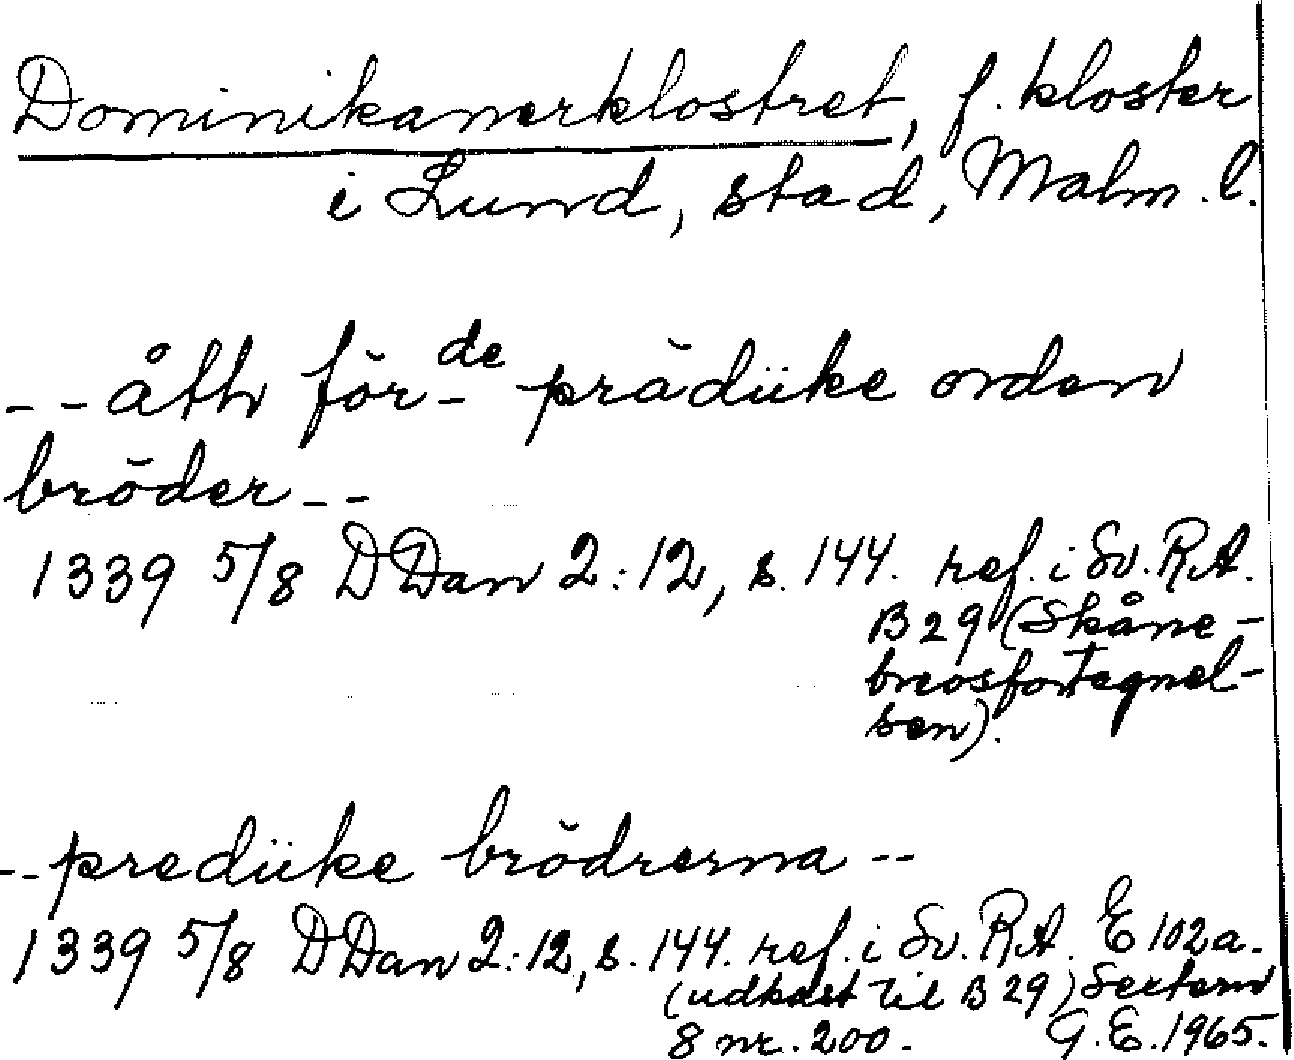 Dominikanerklostret, f. kloster
i Lund, stad, Malm. l.
-- åth för de prădiike orden
brŏder --
1339 5/8 DDan 2:12, s. 144. ref. i Sv. RA.
B 29 (Skåne-
breosfortegnel-
sen).
-- prediike brŏdrerna --
1339 5/8 DDan 2:12, s. 144. ref. i Sv. RA. E 102a.
(udkast til B 29) Sextern
8 nr. 200. G.E. 1965.